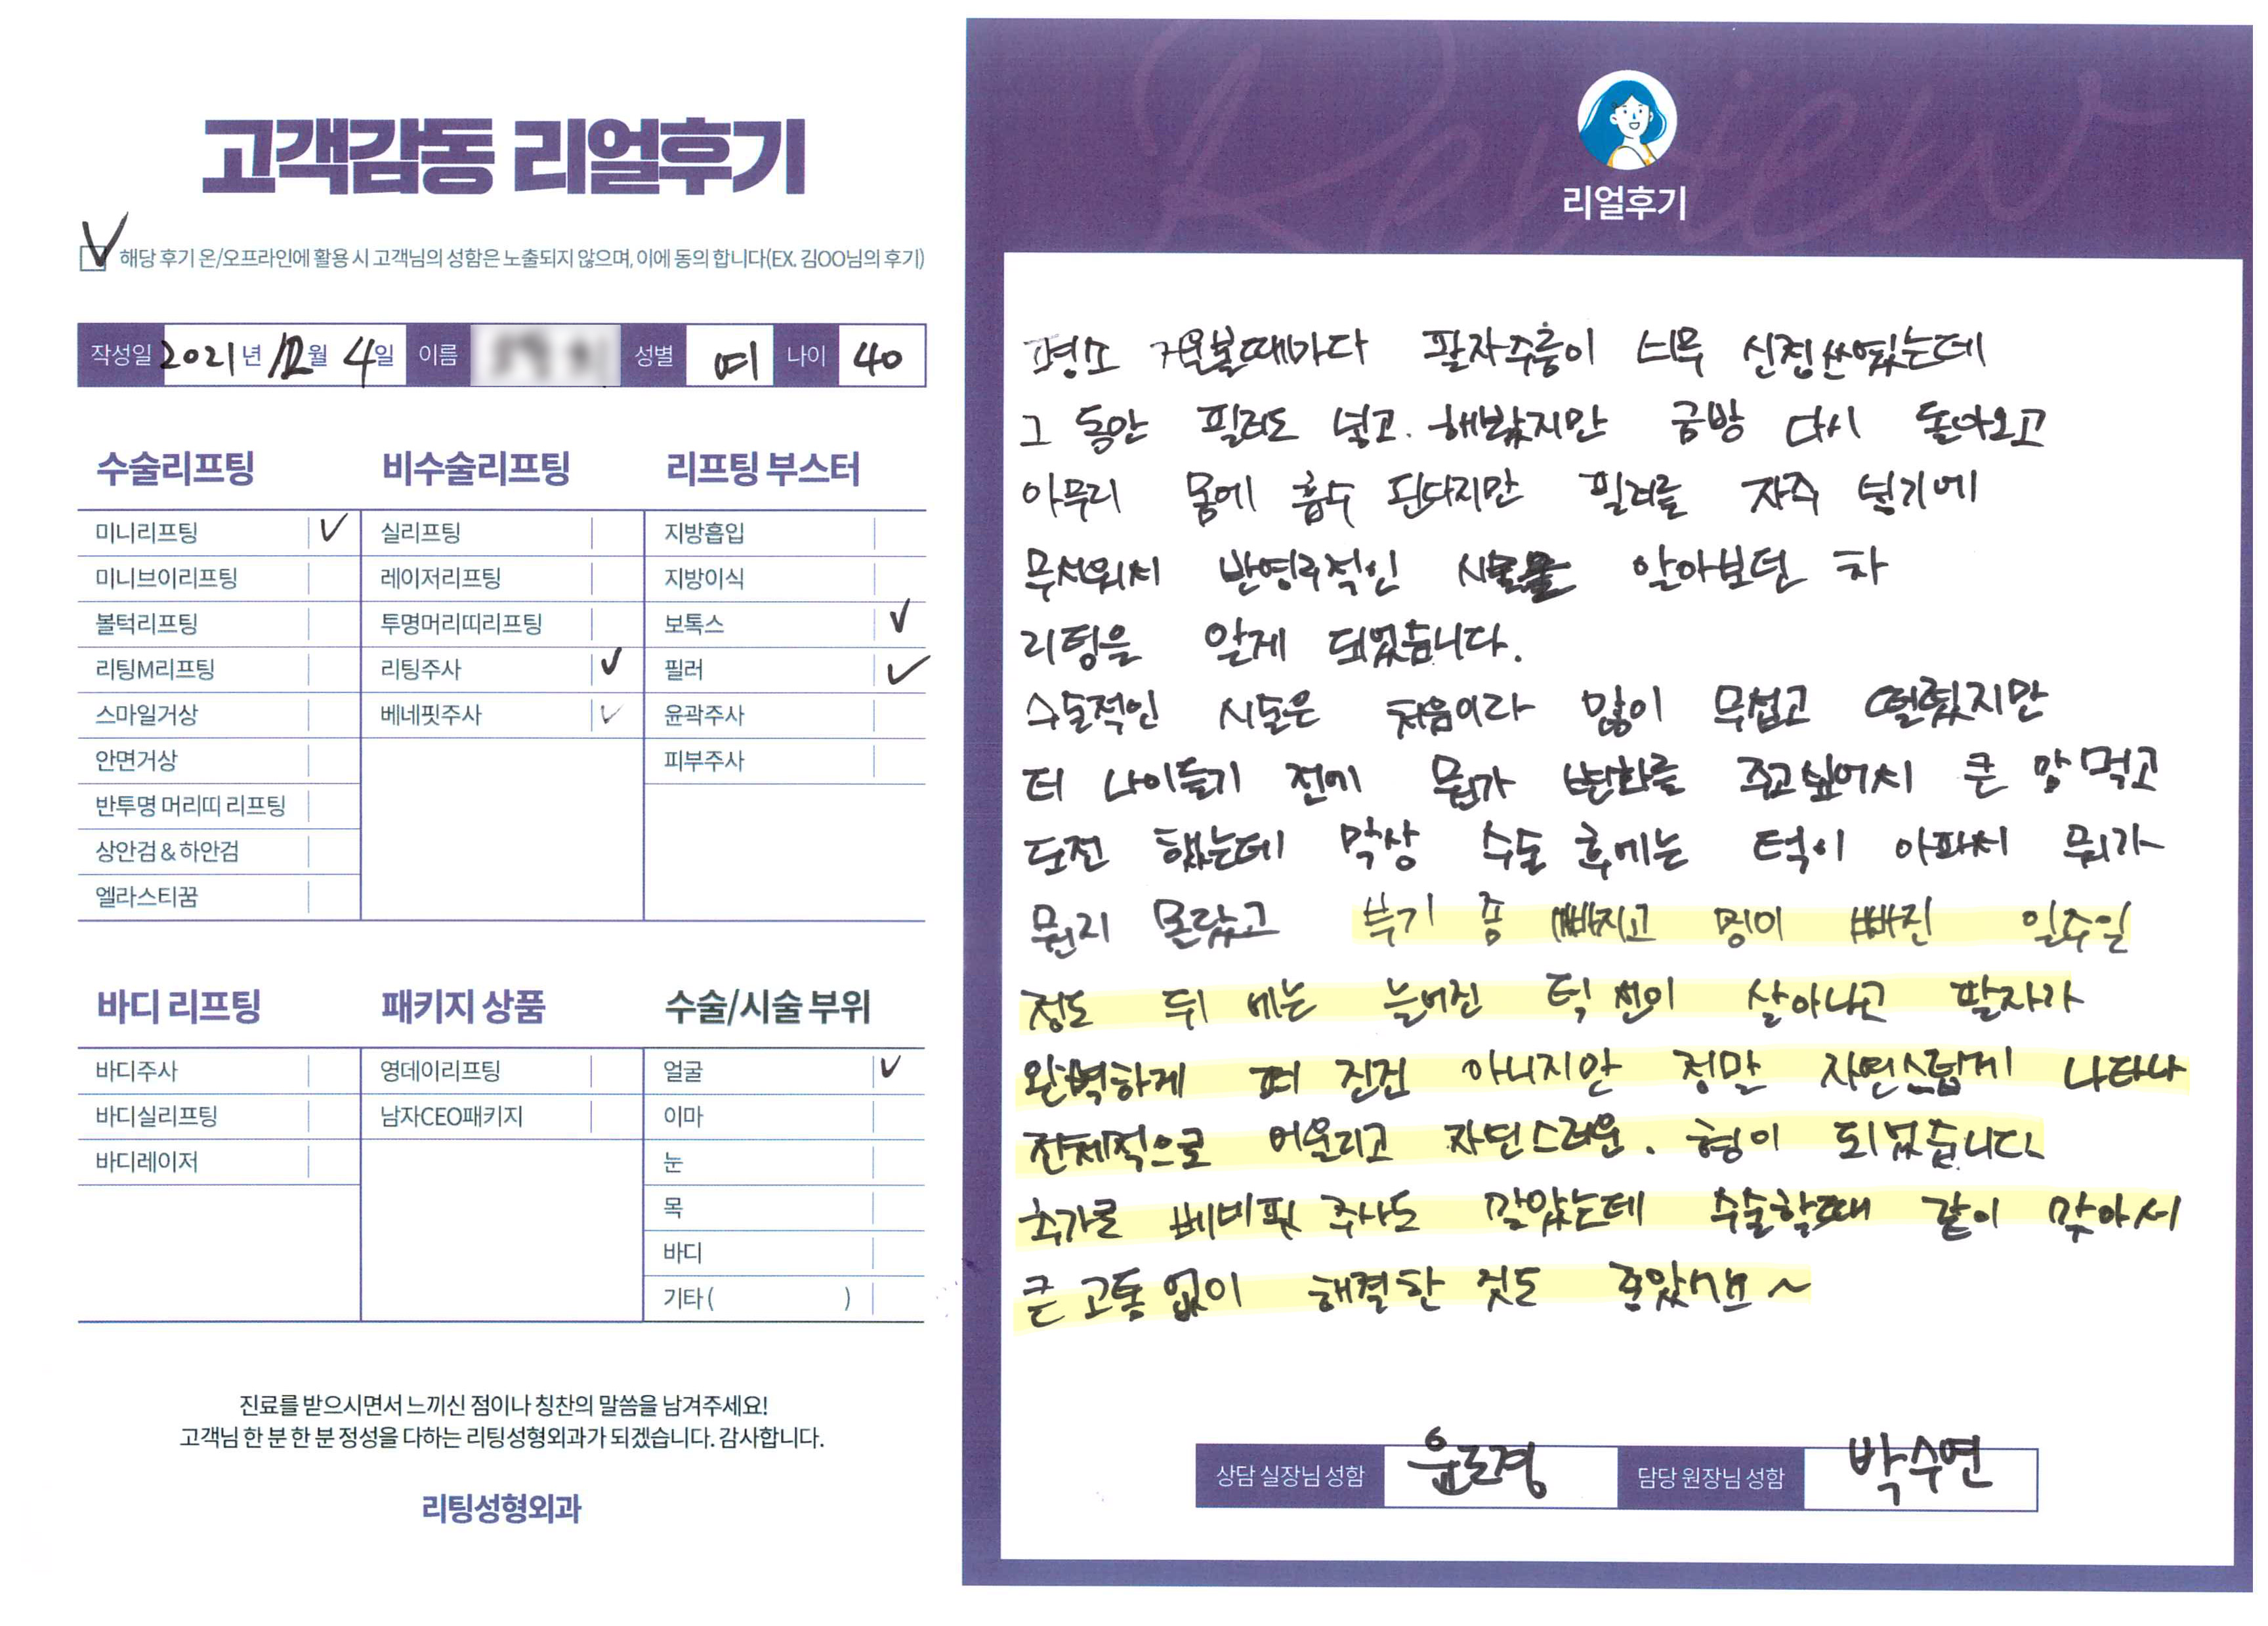 고객감동 리얼후기
해당 후기 온/오프라인에 활용 시 고객님의 성함은 노출되지 않으며, 이에 동의 합니다(EX. 김OO님의 후기)
작성일 2021년 12월 4일 이름 성별 여 나이 40
수술리프팅
미니리프팅 ✓
미니브이리프팅
볼턱리프팅
리팅M리프팅
스마일거상
안면거상
반투명 머리띠 리프팅
상안검 & 하안검
엘라스티꿈
비수술리프팅
실리프팅
레이저리프팅
투명머리띠리프팅
리팅주사 ✓
베네핏주사 ✓
리프팅 부스터
지방흡입
지방이식
보톡스 ✓
필러 ✓
윤곽주사
피부주사
바디 리프팅
바디주사
바디실리프팅
바디레이저
패키지 상품
영데이리프팅
남자CEO패키지
수술/시술 부위
얼굴 ✓
이마
눈
목
바디
기타 ( )
진료를 받으시면서 느끼신 점이나 칭찬의 말씀을 남겨주세요!
고객님 한 분 한 분 정성을 다하는 리팅성형외과가 되겠습니다. 감사합니다.
리팅성형외과
Review
리얼후기
평소 거울볼때마다 팔자주름이 너무 신경쓰였는데
그 동안 필러도 넣고. 해봤지만 금방 다시 돌아오고
아무리 몸에 흡수 된다지만 필러를 자주 넣기에
무서워서 반영구적인 알아보던 차
리팅을 알게 되었습니다.
수술적인 시술은 처음이라 많이 무섭고 떨렸지만
더 나이들기 전에 뭔가 변화를 주고싶어서 큰 맘 먹고
도전 했는데 막상 수술 후에는 턱이 아파서 뭐가
뭔지 몰랐고 붓기 좀 빠지고 멍이 빠진 일주일
정도 뒤 에는 늘어진 턱 선이 살아나고 팔자가
완벽하게 펴 진건 아니지만 정말 자연스럽게 나타나
전체적으로 어울리고 자연스러운. 형이 되었습니다
추가로 베네핏 주사도 맞았는데 수술할때 같이 맞아서
큰 고통 없이 해결한 것도 좋았어요 ~
상담 실장님 성함 윤도경 담당 원장님 성함 박수연